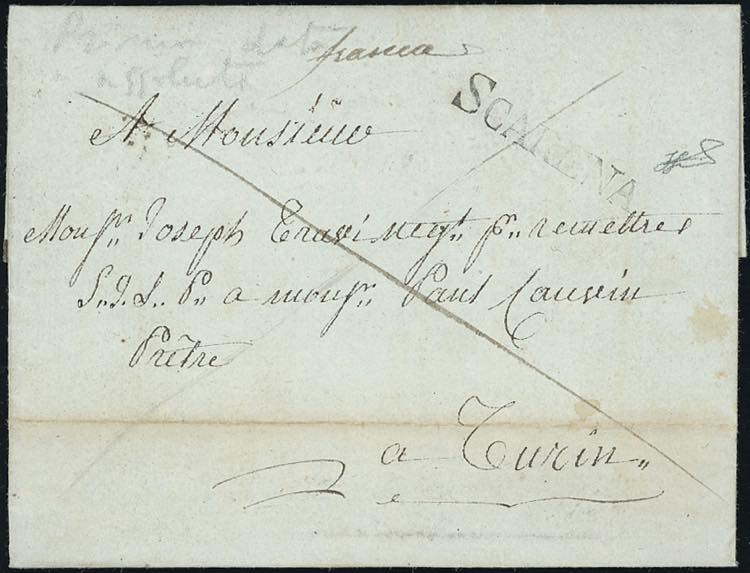 Prima data
assoluta
franca
SCARENA
A Monsieur
Monsr. Joseph Travi negt. pr. remettre
S. J. S. Pr. a monsr. Paul Cauvin
Prêtre
a Turin